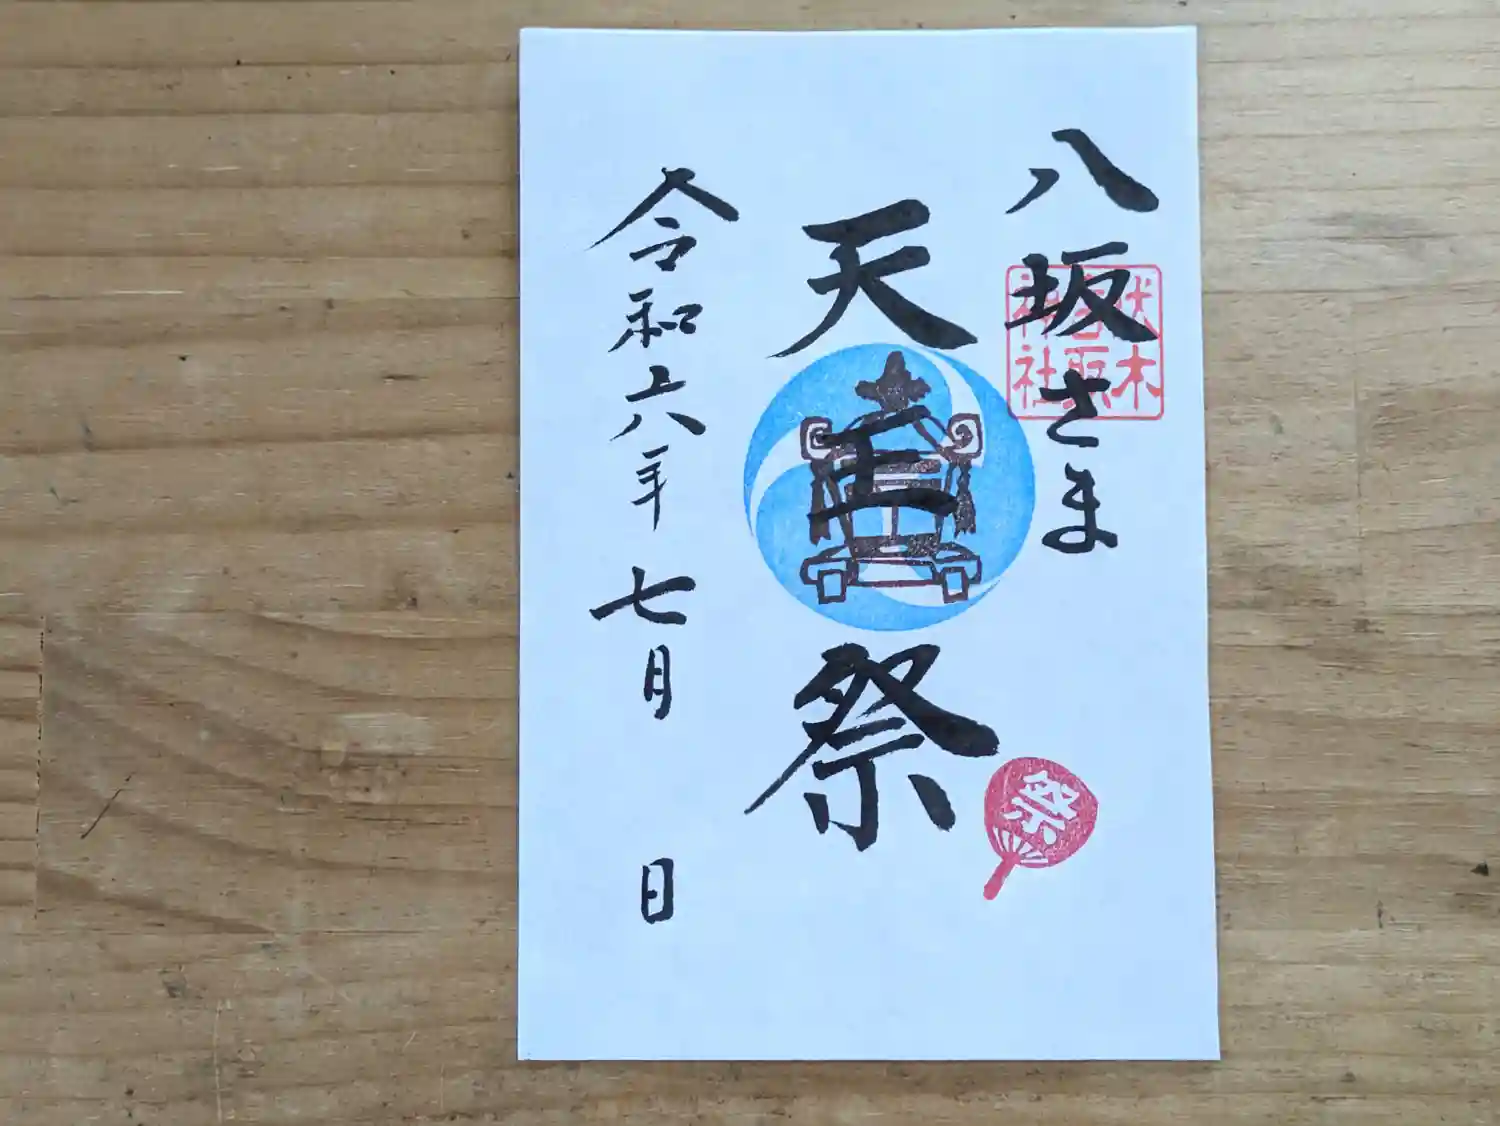 八坂さま
伏木
香取
神社
天王祭
祭
令和六年七月 日